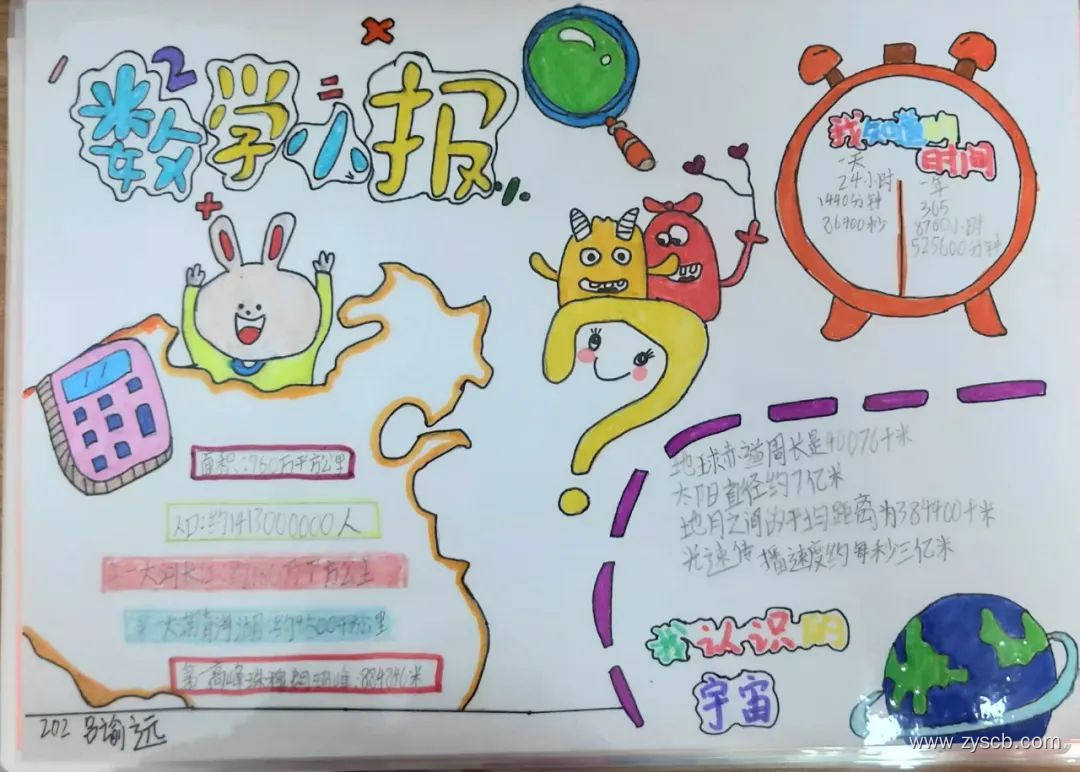 数学小报
我知道的
时间
一天
24小时
1440分钟
86400秒
一年
365
8760小时
525600分钟
面积:960万平方公里
人口:约1413000000人
一大河长江:约180万平方公里
一大湖青海湖:约4500平方公里
第一高峰珠穆朗玛峰:8848.46米
地球赤道周长是40076千米
太阳直径约7亿米
地月之间的平均距离为384400千米
光速传播速度约每秒三亿米
我认识的
宇宙
202 吕谕远
www.zyscb.com